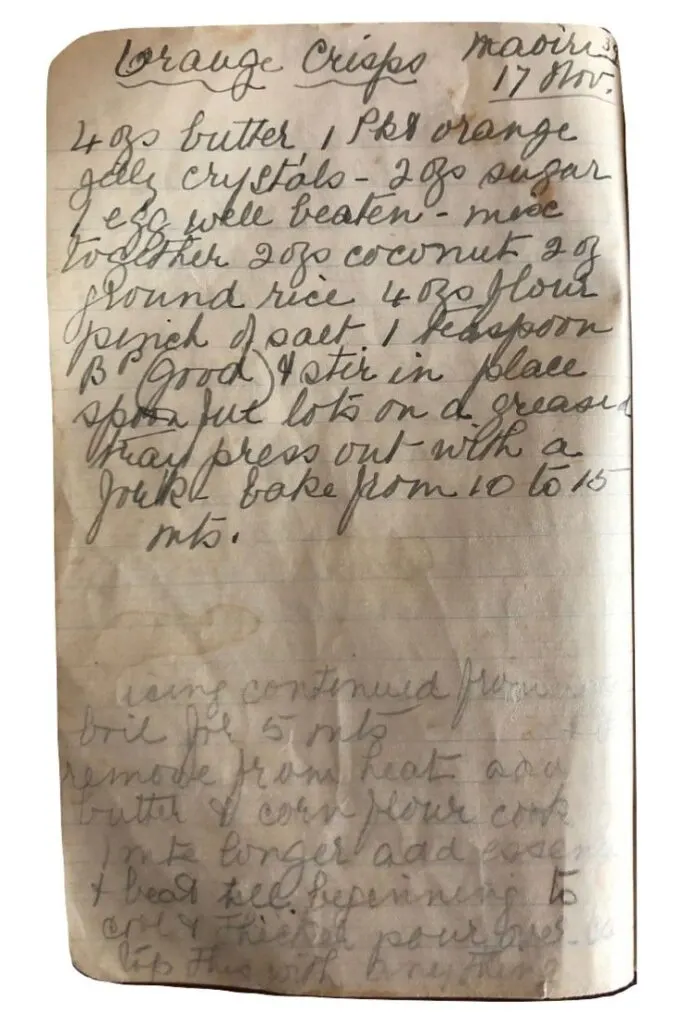 Orange Crisps
17 Nov.
4 ozs butter, 1 Pkt orange
jelly crystals - 2 ozs sugar
1 egg well beaten - mix
together 2 ozs coconut 2 oz
ground rice 4 ozs flour
pinch of salt 1 teaspoon
B P (good) & stir in place
spoon ful lots on a greased
tray press out with a
fork - bake from 10 to 15
mts.
icing continued from
boil for 5 mts
remove from heat add
butter & corn flour cook
1 mts longer add
& beat till beginning to
cool & thicken pour over
top this with anything